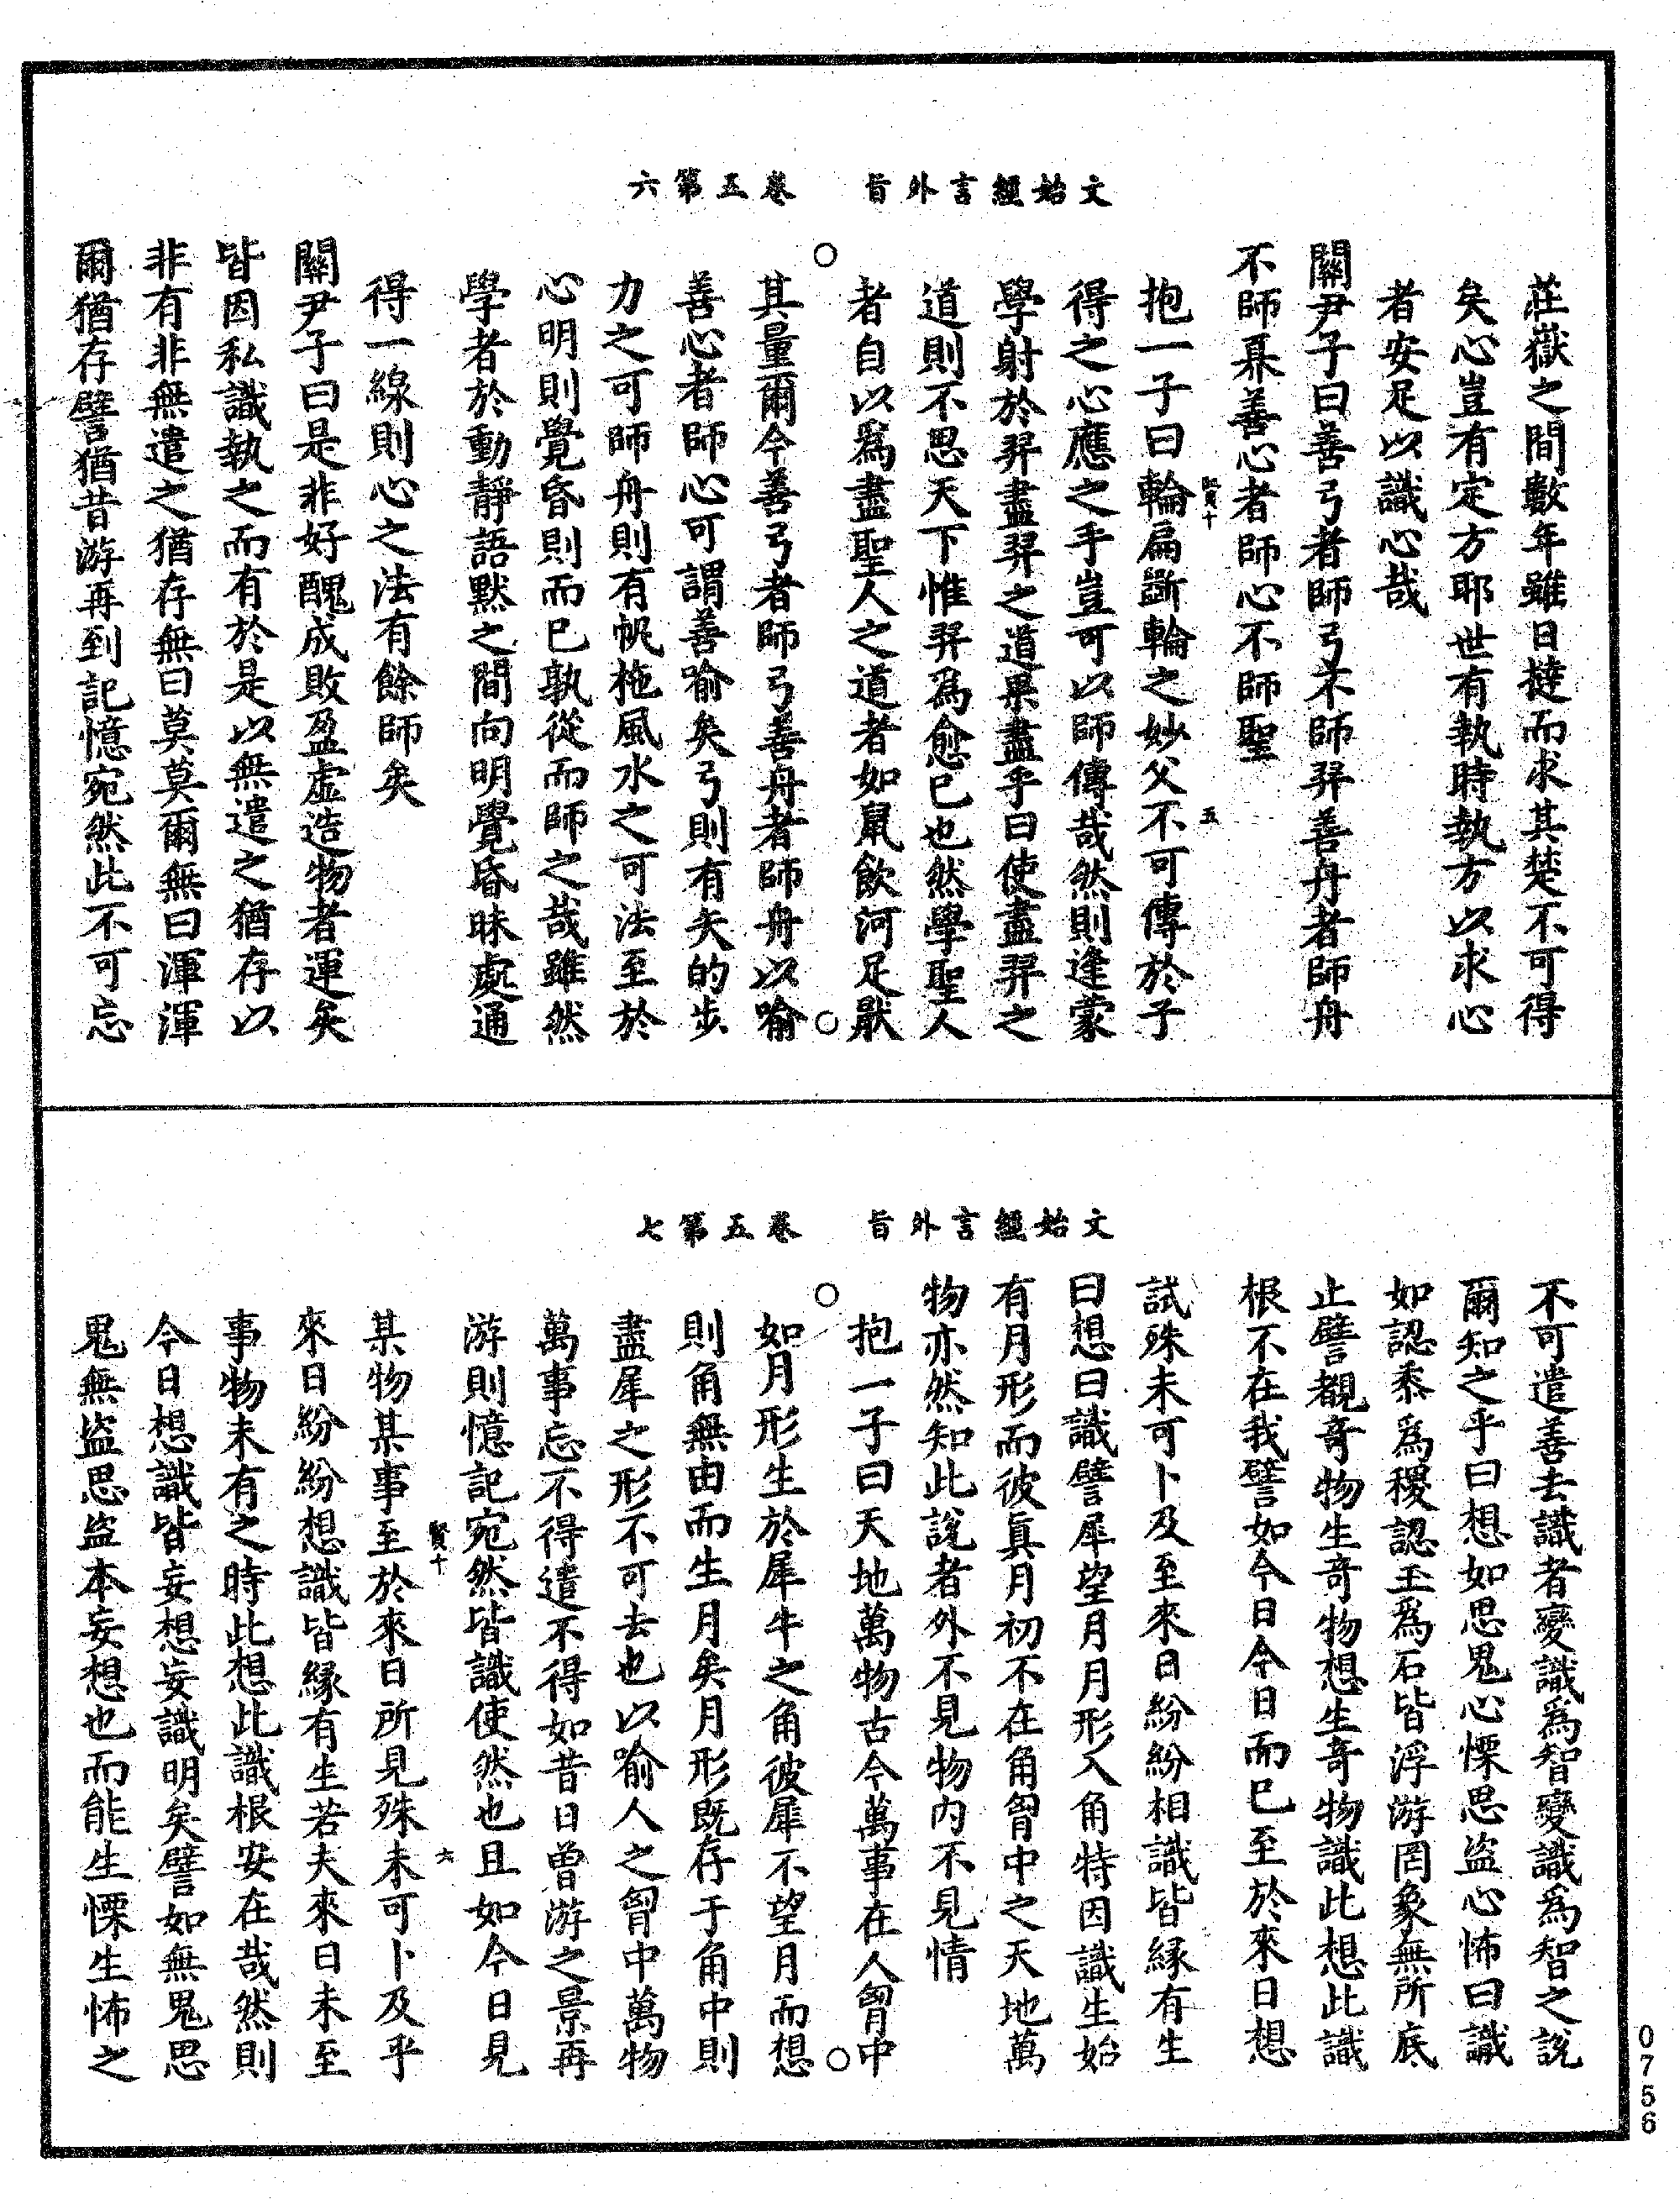 文始經言外旨　卷五第六
莊嶽之間數年雖日撻而求其楚不可得
矣心豈有定方耶世有執時執方以求心
者安足以識心哉
關尹子曰善弓者師弓不師羿善舟者師舟
不師奡善心者師心不師聖
抱一子曰輪扁斲輪之妙父不可傳於子
得之心應之手豈可以師傳哉然則逢蒙
學射於羿盡羿之道果盡乎曰使盡羿之
道則不思天下惟羿爲愈已也然學聖人
者自以爲盡聖人之道者如鼠飲河足厭
其量爾今善弓者師弓善舟者師舟以喻
善心者師心可謂善喻矣弓則有矢的步
力之可師舟則有帆柂風水之可法至於
心明則覺昏則而已孰從而師之哉雖然
學者於動靜語默之間向明覺昏昧處通
得一線則心之法有餘師矣
關尹子曰是非好醜成敗盈虛造物者運矣
皆因私識執之而有於是以無遣之猶存以
非有非無遣之猶存無曰莫莫爾無曰渾渾
爾猶存譬猶昔游再到記憶宛然此不可忘
文始經言外旨　卷五第七
不可遣善去識者變識爲智變識爲智之說
爾知之乎曰想如思鬼心慄思盜心怖曰識
如認黍爲稷認玉爲石皆浮游罔象無所底
止譬覩奇物生奇物想生奇物識此想此識
根不在我譬如今日今日而已至於來日想
識殊未可卜及至來日紛紛相識皆緣有生
曰想曰識譬犀望月月形入角特因識生始
有月形而彼眞月初不在角胷中之天地萬
物亦然知此說者外不見物內不見情
抱一子曰天地萬物古今萬事在人胷中
如月形生於犀牛之角彼犀不望月而想
則角無由而生月矣月形既存于角中則
盡犀之形不可去也以喻人之胷中萬物
萬事忘不得遣不得如昔日曾游之景再
游則憶記宛然皆識使然也且如今日見
某物某事至於來日所見殊未可卜及乎
來日紛紛想識皆緣有生若夫來日未至
事物未有之時此想此識根安在哉然則
今日想識皆妄想妄識明矣譬如無鬼思
鬼無盜思盜本妄想也而能生慄生怖之
賢十
五
賢十
六
0756